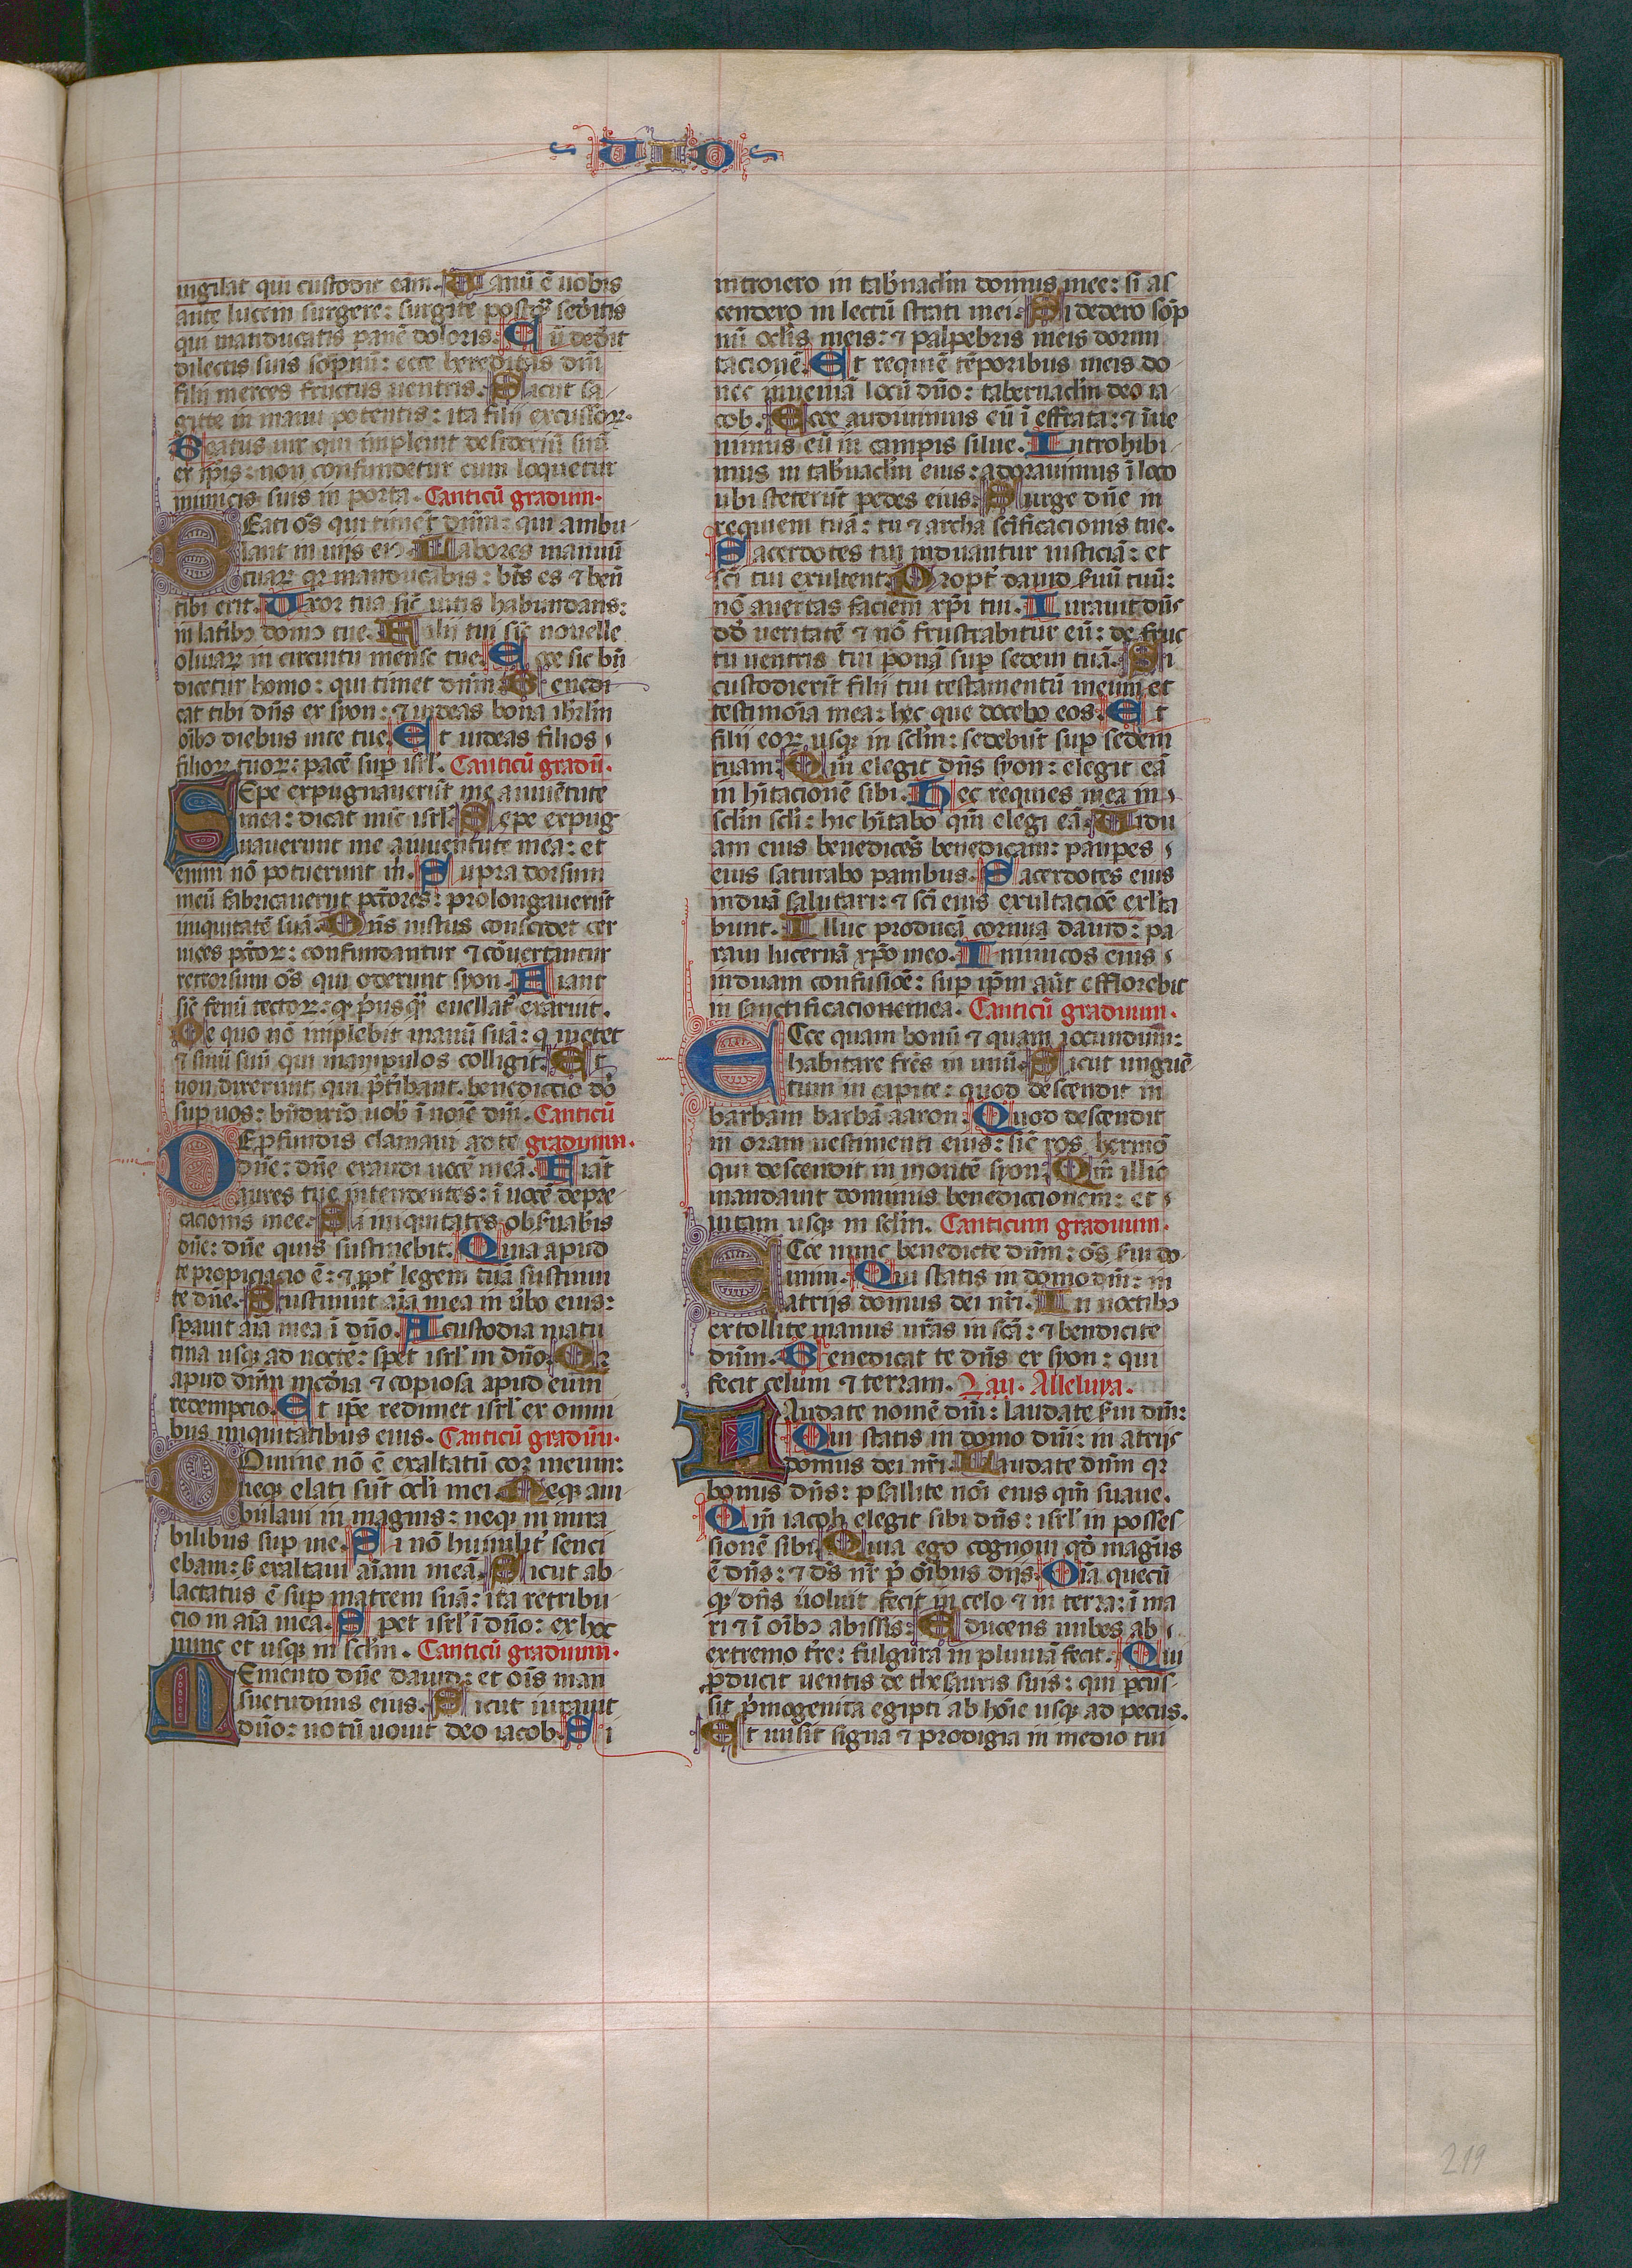 DIO
uigilat qui custodit eam. Uanū ē uobis
ante lucem surgere: surgite postq̄ sed'itis
qui manducatis panē doloris. Cū dedit
dilectis suis sopnū: ecce hereditas dn̄i
filij merces fructus uentris. Sicut sa
gitte in manu potentis: ita filij excussoꝝ.
Beatus uir qui impleuit desideriū suū
ex ip̄is: non confundetur cum loquetur
inimicis suis in porta. Canticū graduum.
BEati om̄s qui timēt dn̄m: qui ambu
lant in uijs eiꝰ. Labores manuū
tuaꝝ qꝛ manducabis: bt̄s es ⁊ ben̄
tibi erit. Uxor tua sic̄ uitis habundans:
in latibꝰ domꝰ tue. Filij tui sic̄ nouelle
oliuaꝝ in circuitu mense tue. Ecce sic bn̄
dicetur homo: qui timet dn̄m. Benedi
cat tibi dn̄s ex syon: ⁊ uideas bona ihrl̄m
oībꝰ diebus uite tue. Et uideas filios
filioꝝ tuoꝝ: pacē sup isrl̄. Canticū gradū.
SEpe expugnauerūt me a iuuētute
mea: dicat nūc isrl̄. Sepe expug
nauerunt me a iuuentute mea: et
enim nō potuerunt m̄. Supra dorsum
meū fabricauerūt pc̄tores: prolongauerūt
iniquitatē suā. Dn̄s iustus concidet cer
uices pc̄toꝝ: confundantur ⁊ cōuertantur
retrorsum om̄s qui oderunt syon. Fiant
sic̄ fenū tectoꝝ: qꝫ p̄usq̄ euellat' exaruit.
De quo nō implebit manū suā: q metet
⁊ sinū suū qui manipulos colligit. Et
non dixerunt qui pt̄ibant. benedictio dn̄i
sup uos: bn̄dixiꝰ uob' ī noīe dn̄i. Canticū
DE ꝓfundis clamaui ad te graduum.
dn̄e: dn̄e exaudi uocē meā. Fiāt
aures tue intendentes: ī uocē depre
cacionis mee. Si iniquitates obs̄uab'is
dn̄e: dn̄e quis sustinebit. Quia apud
te propiciacio ē: ⁊ ꝓpt' legem tuā sustinui
te dn̄e. Sustinuit aīa mea in ūbo eius:
sp̄auit aīa mea ī dn̄o. A custodia matu
tina usqꝫ ad noctē: sp̄et isrl̄ in dn̄o. Qꝛ
apud dn̄m mīcd̄ia ⁊ copiosa apud eum
redempcio. Et ip̄e redimet isrl̄ ex omni
bus iniquitatibus eius. Canticū gradūū.
DOmine nō ē exaltatū cor meum:
neqꝫ elati sūt oc̄li mei. Neqꝫ am
bulaui in magnis: neqꝫ in mira
bilibus sup me. Si nō humilit' senci
ebam: s; exaltaui aīam meā. Sicut ab
lactatus ē sup matrem suā: ita retribu
cio in aīa mea. Spet isrl̄ ī dn̄o: ex hoc
nunc et usqꝫ in sc̄lm. Canticū graduum.
MEmento dn̄e dauid: et om̄is man
suetudinis eius. Sicut iurauit
dn̄o: uotū uouit deo iacob. Si
introiero in tab'nac̄lm domus mee: si as
cendero in lectū strati mei. Si dedero sōp
nū oc̄lis meis: ⁊ palpebris meis dormi
tacionē. Et requiē tēporibus meis do
nec inueniā locū dn̄o: tabernac̄lm deo ia
cob. Ecce audiuimus eū ī effrata: ⁊ īue
nimus eū in campis silue. Introhibi
mus in tab'nac̄lm eius: adorauimus ī loco
ubi steterūt pedes eius. Surge dn̄e in
requiem tuā: tu ⁊ archa sc̄ificacionis tue.
Sacerdotes tui induantur iusticiā: et
sc̄i tui exultent. Propt' dauid s̄uū tuū:
nō auertas faciem xp̄i tui. Iurauit dn̄s
dd' ueritatē ⁊ nō frustrabitur eū: de fruc
tu uentris tui ponā sup sedem tuā. Si
custodierīt filij tui testamentū meum et
testimoīa mea: hec que docebo eos. Et
filij eoꝝ usqꝫ in sc̄lm: sedebūt sup sedem
tuam. Qm̄ elegit dn̄s syon: elegit eā
in hītacionē sibi. Hec requies mea in
sc̄lm sc̄li: hic hītabo qm̄ elegi eā. Uidu
am eius benedicēs benedicam: paupes
eius saturabo panibus. Sacerdotes eius
induā salutari: ⁊ sc̄i eius exultacioē exl'ta
bunt. Illuc producā cornua dauid: pa
raui lucernā xp̄o meo. Inimicos eius
induam confusioē: sup ip̄m aūt efflorebit
in sanctificacione mea. Canticū graduum.
ECce quam bonū ⁊ quam iocundum:
habitare fr̄es in unū. Sicut unguē
tum in capite: quod descendit in
barbam barbā aaron. Quod descendit
in oram uestimenti eius: sic̄ ros hermō
qui descendit in montē syon. Qm̄ illic
mandauit dominus benediccionem: et
uitam usqꝫ in sc̄lm. Canticum graduum.
ECce nunc benedicte dn̄m: om̄s s̄ui do
mini. Qui statis in domo dn̄i: in
atrijs domus dei nr̄i. In noctibꝰ
extollite manus ur̄as in sc̄a: ⁊ bendicite
dn̄m. Benedicat te dn̄s ex syon: qui
fecit celum ⁊ terram. Lau. Alleluya.
LAudate nomē dn̄i: laudate s̄ui dn̄m:
Qui statis in domo dn̄i: in atrijs
domus dei nr̄i. Laudate dn̄m qꝛ
bonus dn̄s: psallite nōi eius qm̄ suaue.
Qm̄ iacob elegit sibi dn̄s: isrl̄ in posses
sionē sibi. Quia ego cognoui qd̄ magnus
ē dn̄s: ⁊ ds̄ nr̄ p̄ oībus dijs. Oīa quecū
qꝫ dn̄s uoluit fecit in celo ⁊ in terra: ī ma
ri ⁊ ī oībꝰ abissis: Educens nubes ab
extremo tr̄e: fulgura in pluuiā fecit. Qui
ꝓducit uentis de thesauris suis: qui pcus
sit p̄mogenita egipti ab hoīe usqꝫ ad pecus.
Et misit signa ⁊ prodigia in medio tui
219